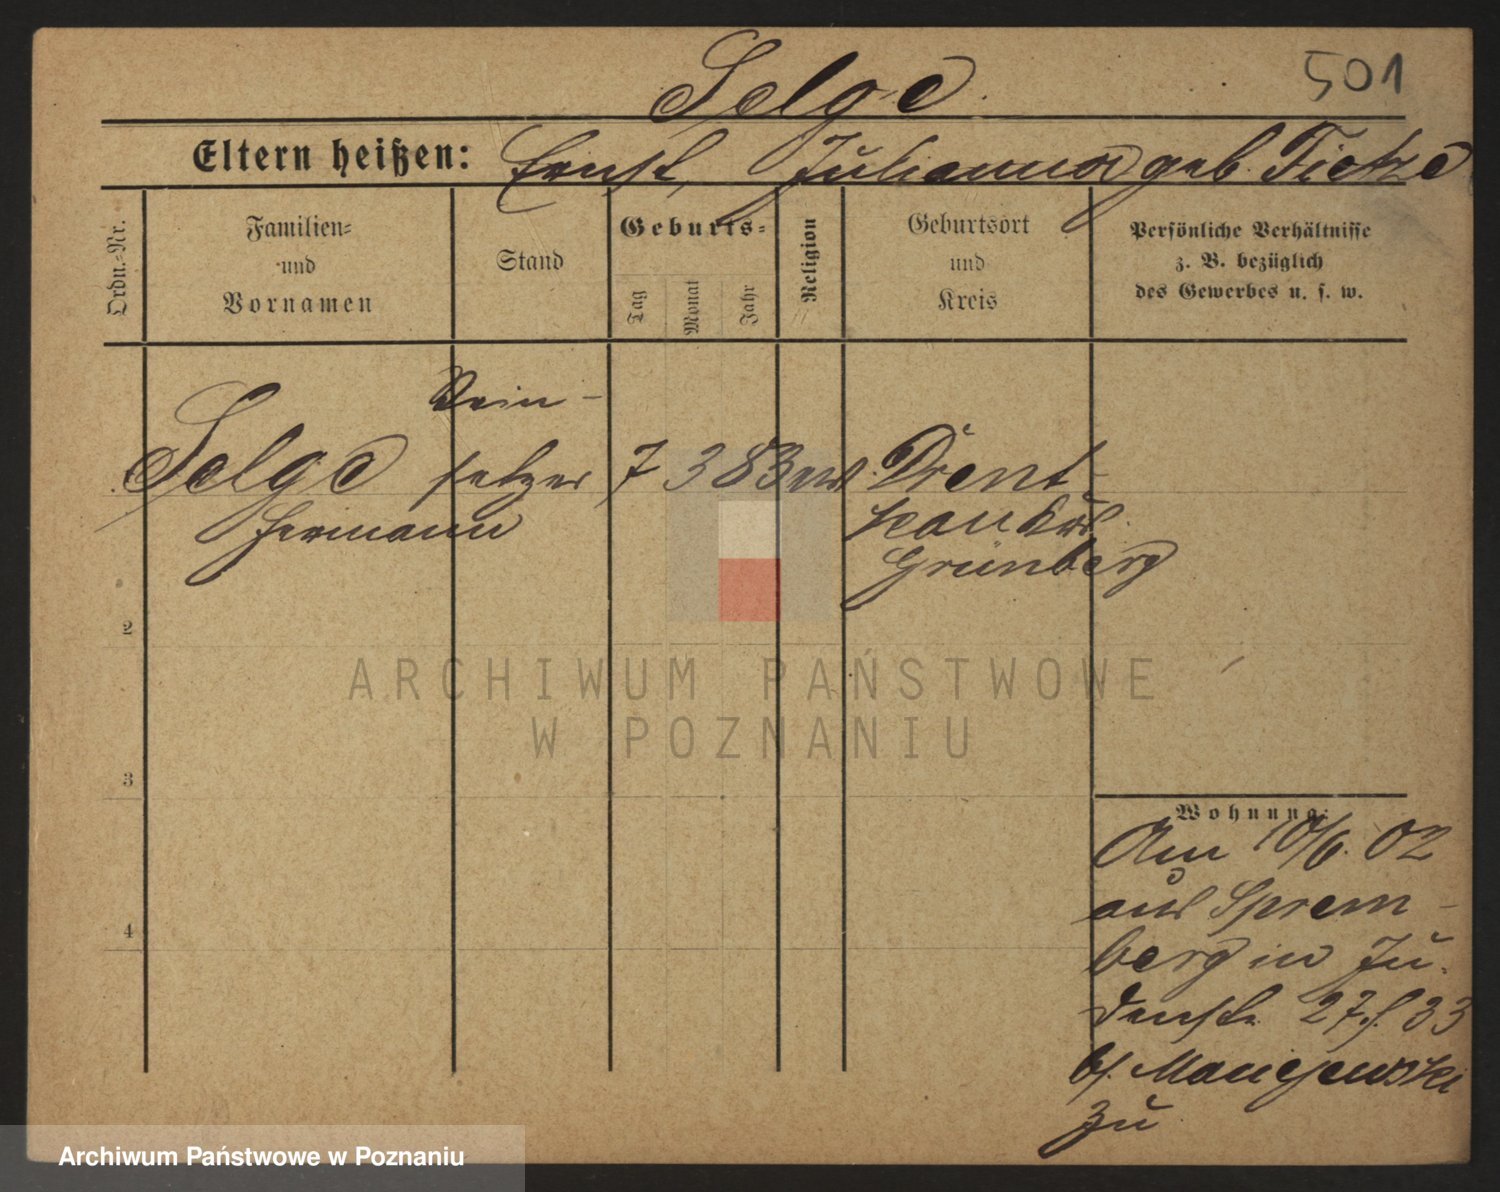 Selge
501
Eltern heißen: Ernst, Julianna geb. Tietze
Ordn.-Nr.
Familien-
und
Vornamen
Stand
Geburts-
Tag
Monat
Jahr
Religion
Geburtsort
und
Kreis
Persönliche Verhältnisse
z. B. bezüglich
des Gewerbes u. s. w.
Selge
Hermann
setzer
7 3 83
Drent-
kau Krs.
Grünberg
2
3
4
ARCHIWUM PAŃSTWOWE
W POZNANIU
Wohnung:
Am 10/6. 02
aus Sprem-
berg in Ju-
denstr. 27
b/.
zu
Archiwum Państwowe w Poznaniu